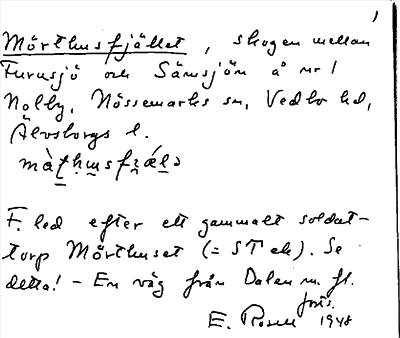 1
Mörthusfjället, skogen mellan
Furusjö och Sämsjön å nr 1
Nolby, Nössemarks sn, Vedbo hd,
Älvsborgs l.
F. led efter ett gammalt soldat-
torp Mörthuset (= ST ek). Se
detta! - En väg från Dalen m. fl.
forts.
E. Rosell 1948